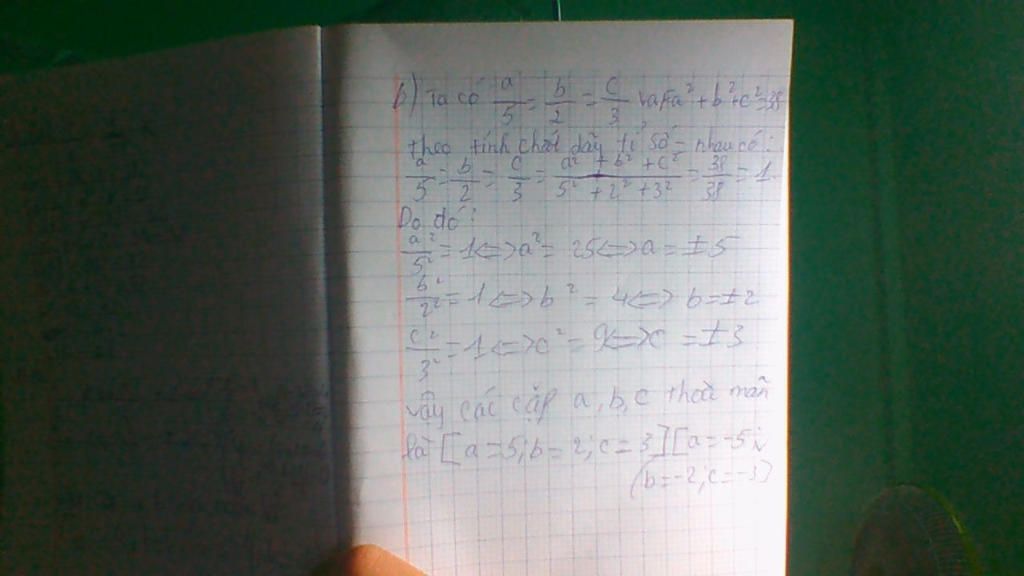 b) Ta có a/5 = b/2 = c/3 và a² + b² + c² = 38
theo tính chất dãy tỉ số = nhau có:
a/5 = b/2 = c/3 = (a² + b² + c²)/(5² + 2² + 3²) = 38/38 = 1.
Do đó:
a²/5² = 1 <=> a² = 25 <=> a = ±5
b²/2² = 1 <=> b² = 4 <=> b = ±2
c²/3² = 1 <=> c² = 9 <=> c = ±3
vậy các cặp a, b, c thoả mãn
là [a = 5; b = 2; c = 3] [a = -5;
(b = -2; c = -3)